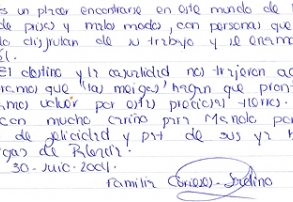 s un placer encontrarse en este mundo de
de prisas y malos modos, con personas que
lo disfrutan de su trabajo y se enamo
él.
El destino y la casualidad nos trajeron a
remos que "las meigas" hagan que pron
amos volver por estas preciosas tierras.
con mucho cariño para Manolo
de felicidad y paz de sus ya
gas de
30-Julio-2004.
Familia